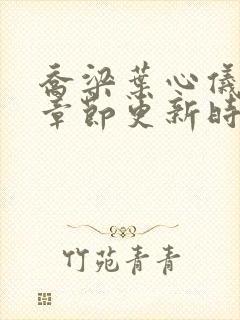 喬梁葉心儀
章節更新時
竹苑青青